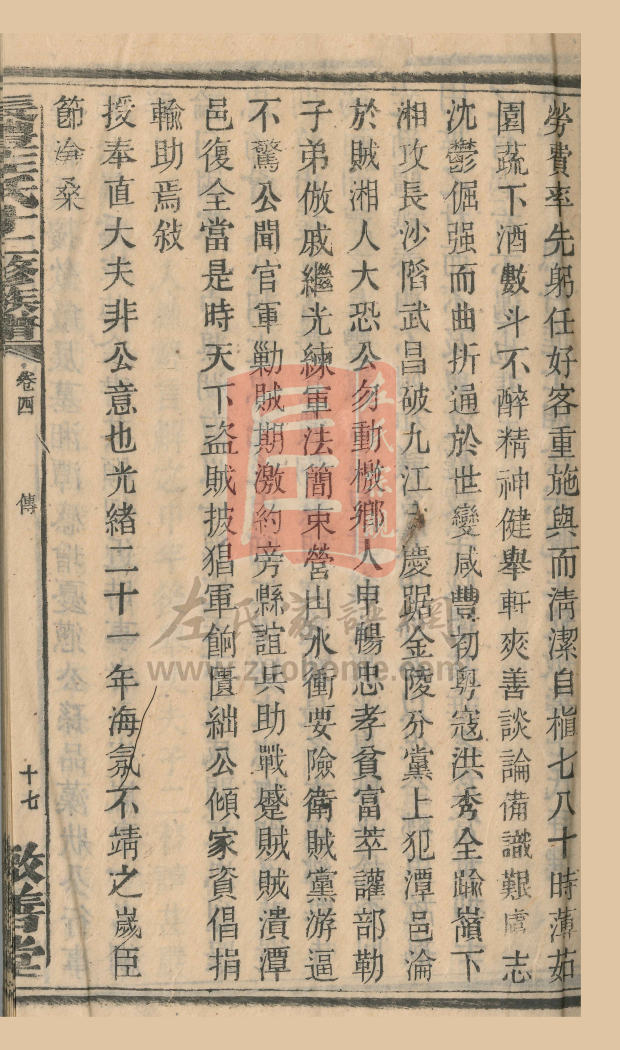 勞費率先躬任好客重施與而清潔自樍七八十時薄茹
園蔬下酒數斗不醉精神健舉軒爽善談論備識艱虞志
沈鬱倔强而曲折通於世變咸豐初粤寇洪秀全踰嶺下
湘攻長沙陷武昌破九江慶踞金陵分黨上犯潭邑淪
於賊湘人大恐公勿動檄鄉人申暢忠孝貧富萃讙部勒
子弟倣戚繼光練軍法簡束營山水衝要險衛賊黨游逼
不驚公聞官軍勦賊期激約旁縣誼共助戰蹙賊賊潰潭
邑復全當是時天下盗賊披猖軍餉匱絀公傾家資倡捐
輸助焉敍
授奉直大夫非公意也光緒二十一年海氛不靖之歲臣
節淪桑
左氏十二修族譜
卷四
傳
十七
敦善堂
左氏家譜網
www.zuohome.com